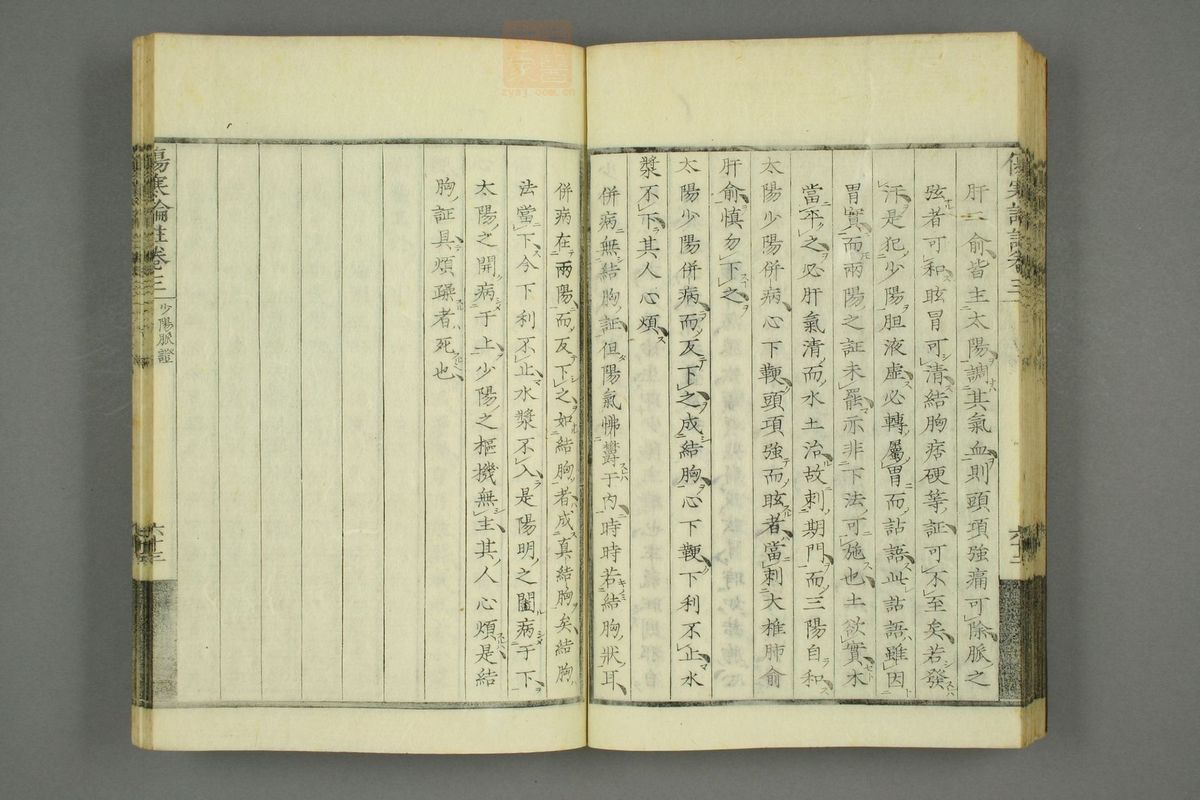 肝二俞皆主太陽調其氣血則頭項強痛可除脈之
弦者可和眩冒可清結胸痞硬等証可不至矣若發
汗是犯少陽胆液虛必轉屬胃而詀語此詀語雖因
胃實而兩陽之証未罷亦非下法可施也土欲實木
當平之必肝氣清而水土治故刺期門而三陽自和
太陽少陽併病心下鞕頭項強而眩者當刺大椎肺俞
肝俞慎勿下之
太陽少陽併病而反下之成結胸心下鞕下利不止水
漿不下其人心煩
併病無結胸証但陽氣怫欝于內時時若結胸狀耳
併病在兩陽而反下之如結胸者成真結胸矣結胸
法當下今下利不止水漿不入是陽明之闔病于下
太陽之開病于上少陽之樞機無主其人心煩是結
胸証具煩躁者死也
傷寒論註卷三
少陽脈證
六十三
zysj.com.cn